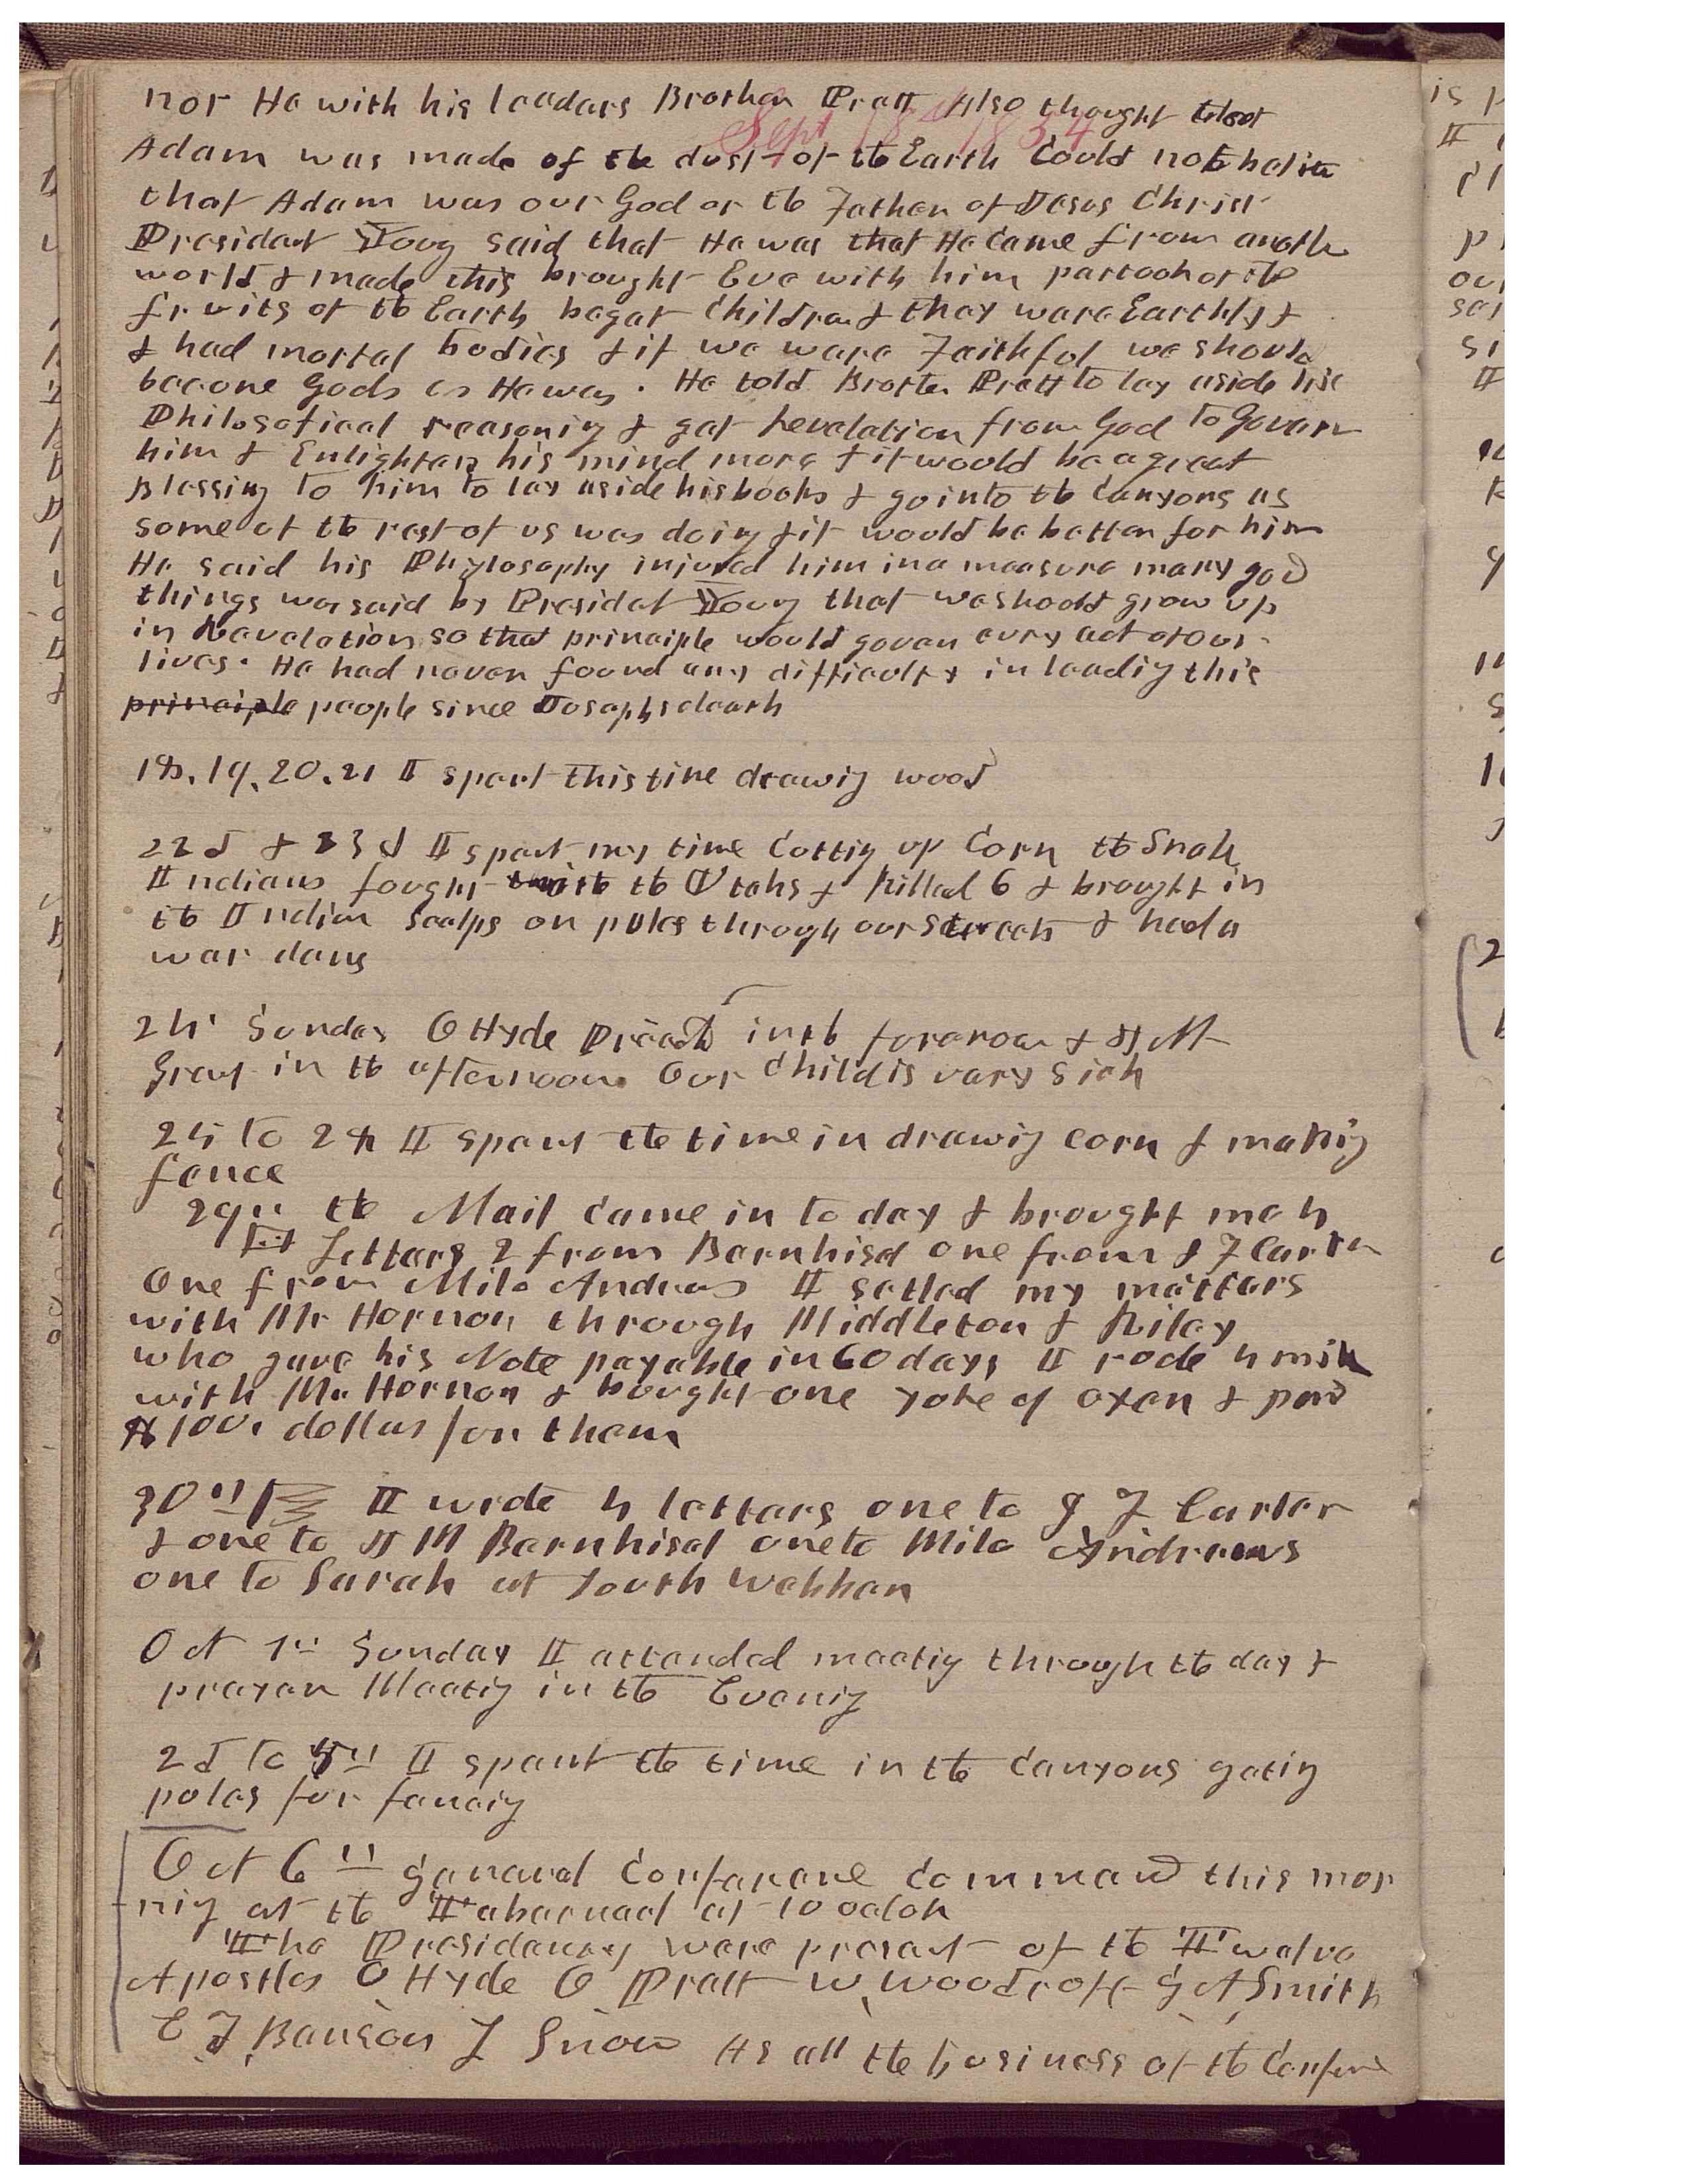 nor He with his leaders Brother Pratt Also thought that
Sept 18th 1854
Adam was made of the dust of the Earth Could not belive
that Adam was our God or the Father of Jesus Christ
President Young said that He was that He came from another
world & made this brought Eve with him partook of the
fruits of the Earth begat Children & they ware Earthly &
& had mortal bodies & if we ware Faithful we should
become Gods as He was. He told Brother Pratt to lay aside his
Philosofical reasoning & get Revelation from God to Govern
him & Enlighten his mind more & it would be a great
Blessing to him to lay aside his books & go into the Canyons as
some of the rest of us was doing & it would be better for him
He said his Phylosophy injured him in a measure many good
things was said by President Young that we should grow up
in Revelation so that principle would govern evry act of our
lives. He had never found any difficulty in leading this
principle people since Josephs death
18, 19, 20, 21 I spent this time drawing wood
22d & 23d I spent my time Cutting up Corn the Snake
Indians fought with the Utahs & killed 6 & brought in
the Indian Scalps on poles through our streets & had a
war dance
24 Sunday O Hyde Preach in the forenoon & J M
Grant in the afternoon Our Child is very Sick
25 to 28 I spent the time in drawing corn & making
fence
29th the Mail came in to day & brought me 4
Letters 2 from Barnhisel one from I F Carter
One from Milo Andrus I setled my matters
with Mr Hornon through Middleton & Riley
who gave his Note payable in 60 days I rode 4 mile
with Mr. Hornon & bought one yoke of oxen & paid
$100. dollars for them
30th I wrote 4 letters one to I F Carter
& one to J M Barnhisel one to Milo Andrews
one to Sarah at South Webber
Oct 1st Sunday I attended meeting through the day &
prayer Meeting in the Evening
2d to 5th I spent the time in the Canyons geting
poles for fencing
Oct 6th General Conference Commencd this mor
ning at the Tabernacl at 10 oclok
The Presidency ware present of the Twelve
Apostles O Hyde O Pratt W. Woodruff G A Smith
E T Benson L Snow As all the business of the Confere